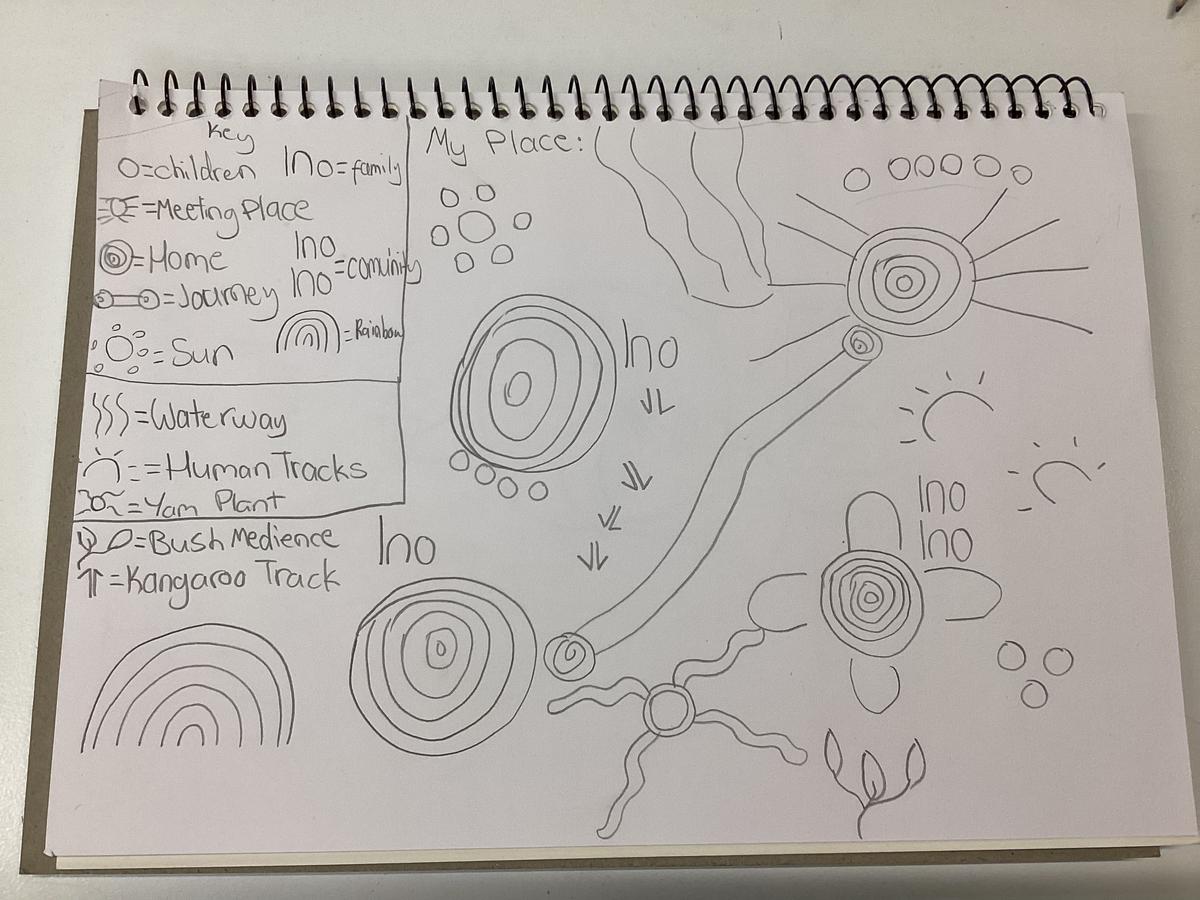 Key
O=children lno=family
=Meeting Place
=Home
lno
lno =comunity
=Journey
=Sun
=Rainbow
=Waterway
=Human Tracks
=Yam Plant
=Bush Medience
=Kangaroo Track
My Place:
lno
lno
lno
lno